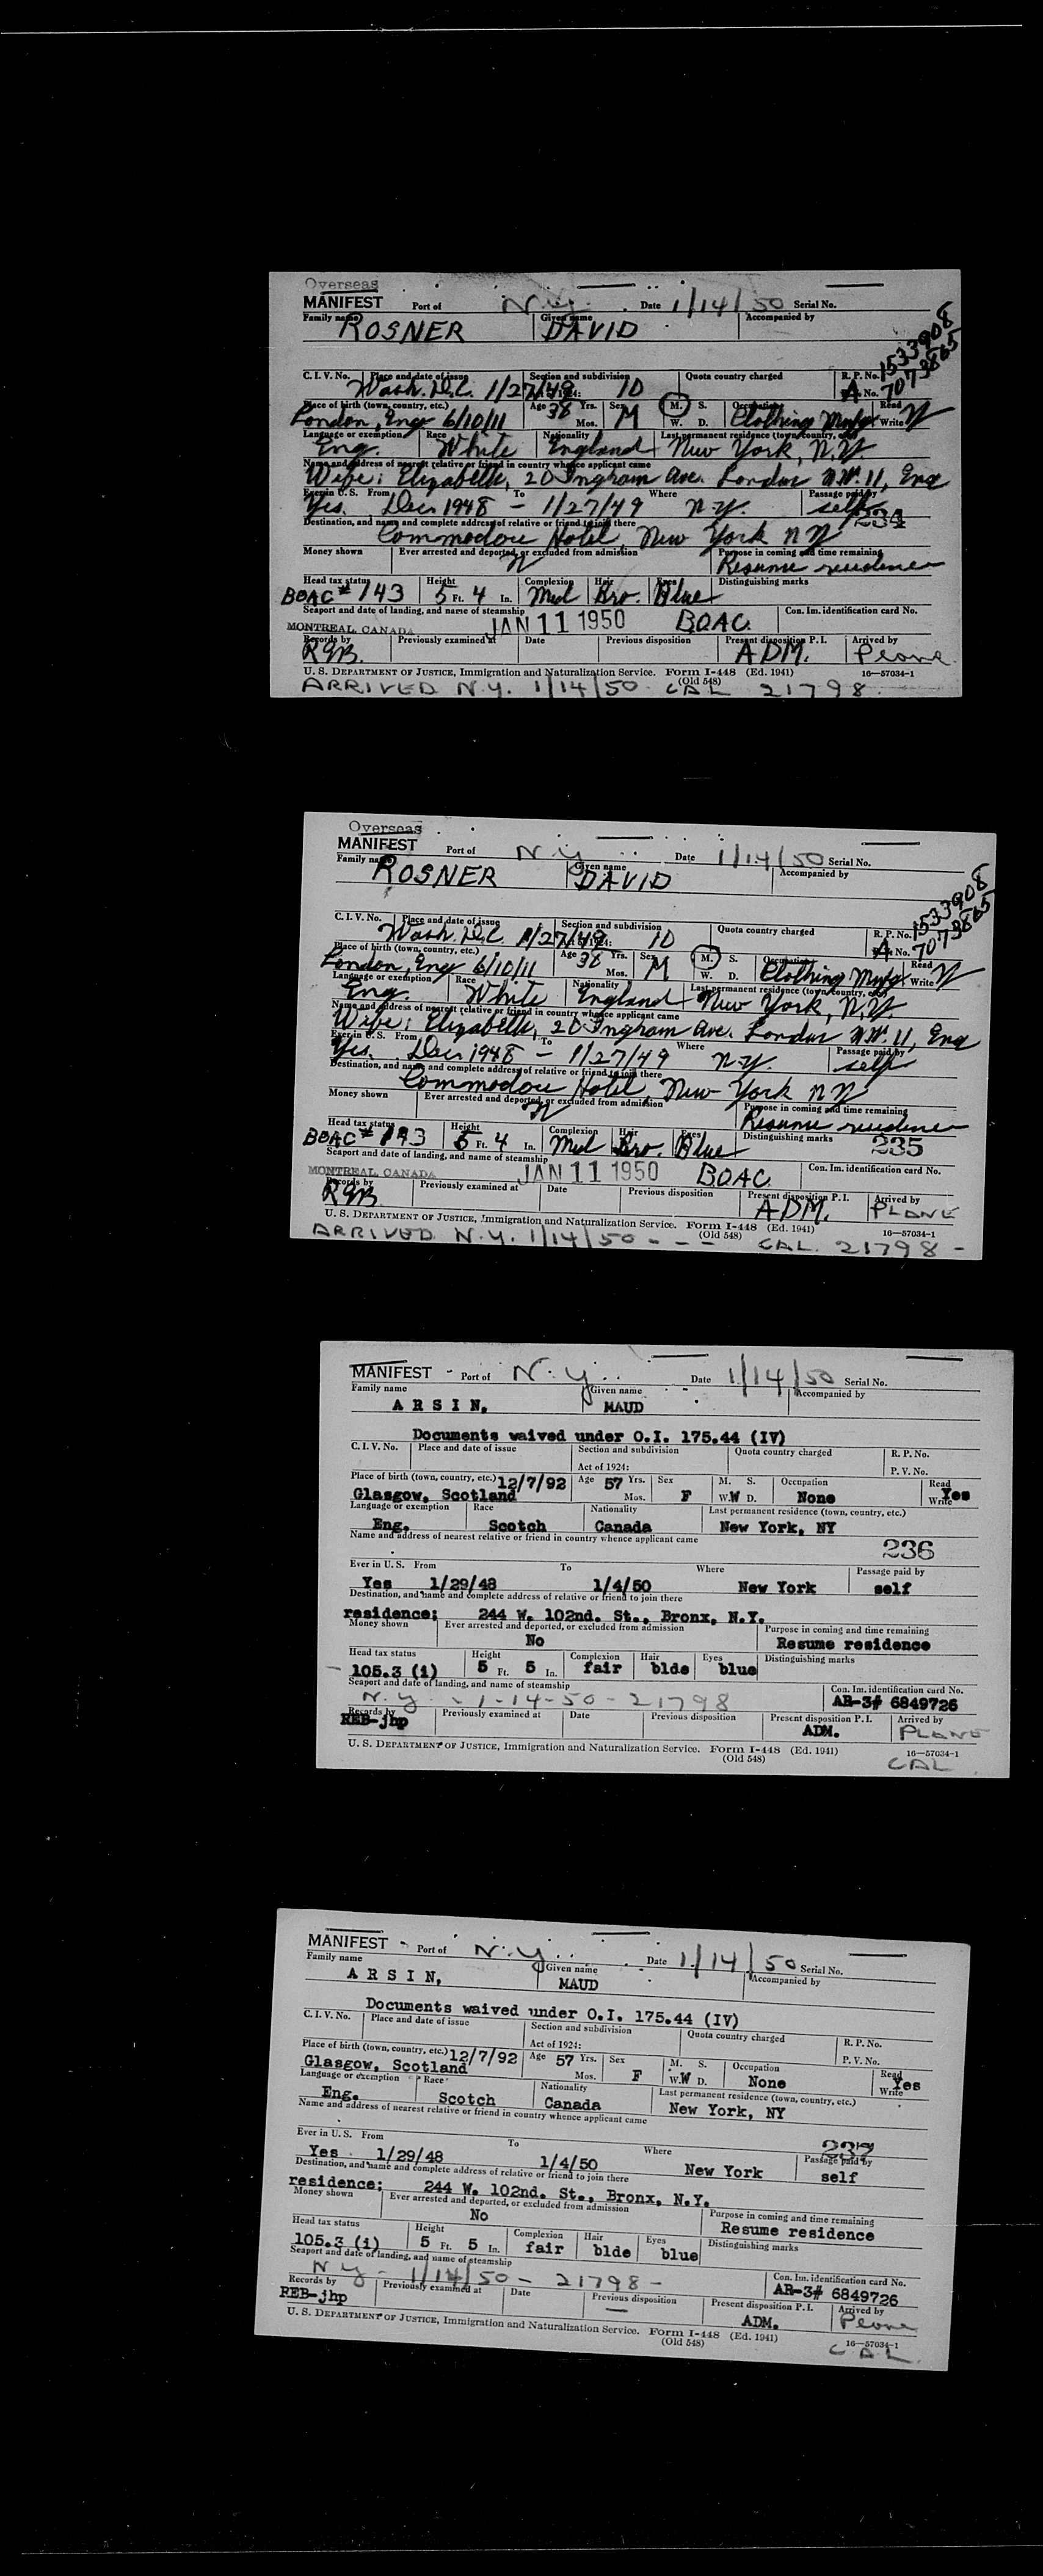 Overseas
MANIFEST Port of N.Y. Date 1/14/50 Serial No.
Family name ROSNER Given name DAVID Accompanied by
1533908
C. I. V. No. Place and date of issue Wash. D.C. 1/27/49 Section and subdivision Act of 1924: 1D Quota country charged R. P. No. A 7073865
Place of birth (town, country, etc.) London, Eng 6/10/11 Age 38 Yrs. Mos. Sex M M. S. W. D. Occupation Clothing Mnfg Read Write
Language or exemption Eng. Race White Nationality England Last permanent residence (town, country, etc.) New York, N.Y.
Name and address of nearest relative or friend in country whence applicant came
Wife: Elizabeth, 20 Ingram Ave. London N.W. 11, Eng
Ever in U. S. From Yes. Dec 1948 - To 1/27/49 Where N.Y. Passage paid by self
234
Destination, and name and complete address of relative or friend to join there
Commodore Hotel, New York N Y
Money shown Ever arrested and deported, or excluded from admission N Purpose in coming and time remaining Resume residence
Head tax status BOAC # 143 Height 5 Ft. 4 In. Complexion Med Hair Bro. Eyes Blue Distinguishing marks
Seaport and date of landing, and name of steamship Con. Im. identification card No.
MONTREAL, CANADA JAN 11 1950 BOAC
Records by RGB. Previously examined at Date Previous disposition Present disposition P. I. ADM. Arrived by Plane
U. S. DEPARTMENT OF JUSTICE, Immigration and Naturalization Service. Form I-448 (Ed. 1941) (Old 548) 16—57034-1
ARRIVED N.Y. 1/14/50 CAL 21798
Overseas
MANIFEST Port of N.Y. Date 1/14/50 Serial No.
Family name ROSNER Given name DAVID Accompanied by
1533908
C. I. V. No. Place and date of issue Wash. D.C. 1/27/49 Section and subdivision Act of 1924: 1D Quota country charged R. P. No. A 7073865
Place of birth (town, country, etc.) London, Eng 6/10/11 Age 38 Yrs. Mos. Sex M M. S. W. D. Occupation Clothing Mnfg Read Write
Language or exemption Eng. Race White Nationality England Last permanent residence (town, country, etc.) New York, N.Y.
Name and address of nearest relative or friend in country whence applicant came
Wife: Elizabeth, 20 Ingram Ave. London N.W. 11, Eng
Ever in U. S. From Yes. Dec 1948 - To 1/27/49 Where N.Y. Passage paid by self
Destination, and name and complete address of relative or friend to join there
Commodore Hotel, New York N Y
Money shown Ever arrested and deported, or excluded from admission N Purpose in coming and time remaining Resume residence
Head tax status BOAC # 143 Height 5 Ft. 4 In. Complexion Med Hair Bro. Eyes Blue Distinguishing marks 235
Seaport and date of landing, and name of steamship Con. Im. identification card No.
MONTREAL, CANADA JAN 11 1950 BOAC
Records by RGB. Previously examined at Date Previous disposition Present disposition P. I. ADM. Arrived by PLANE
U. S. DEPARTMENT OF JUSTICE, Immigration and Naturalization Service. Form I-448 (Ed. 1941) (Old 548) 16—57034-1
ARRIVED N.Y. 1/14/50 - - - CAL. 21798 -
MANIFEST Port of N.Y. Date 1/14/50 Serial No.
Family name ARSIN, Given name MAUD Accompanied by
Documents waived under O.I. 175.44 (IV)
C. I. V. No. Place and date of issue Section and subdivision Act of 1924: Quota country charged R. P. No. P. V. No.
Place of birth (town, country, etc.) 12/7/92 Glasgow, Scotland Age 57 Yrs. Mos. Sex F M. S. W. W D. Occupation None Read Write Yes
Language or exemption Eng. Race Scotch Nationality Canada Last permanent residence (town, country, etc.) New York, NY
Name and address of nearest relative or friend in country whence applicant came
236
Ever in U. S. From Yes 1/29/48 To 1/4/50 Where New York Passage paid by self
Destination, and name and complete address of relative or friend to join there
residence; 244 W. 102nd. St., Bronx, N.Y.
Money shown Ever arrested and deported, or excluded from admission No Purpose in coming and time remaining Resume residence
Head tax status 105.3 (i) Height 5 Ft. 5 In. Complexion fair Hair blde Eyes blue Distinguishing marks
Seaport and date of landing, and name of steamship N.Y - 1-14-50-21798 Con. Im. identification card No. AR-3# 6849726
Records by REB-jhp Previously examined at Date Previous disposition Present disposition P. I. ADM. Arrived by PLANE
U. S. DEPARTMENT OF JUSTICE, Immigration and Naturalization Service. Form I-448 (Ed. 1941) (Old 548) 16—57034-1
CAL
MANIFEST Port of N.Y. Date 1/14/50 Serial No.
Family name ARSIN, Given name MAUD Accompanied by
Documents waived under O.I. 175.44 (IV)
C. I. V. No. Place and date of issue Section and subdivision Act of 1924: Quota country charged R. P. No. P. V. No.
Place of birth (town, country, etc.) 12/7/92 Glasgow, Scotland Age 57 Yrs. Mos. Sex F M. S. W. W D. Occupation None Read Write Yes
Language or exemption Eng. Race Scotch Nationality Canada Last permanent residence (town, country, etc.) New York, NY
Name and address of nearest relative or friend in country whence applicant came
237
Ever in U. S. From Yes 1/29/48 To 1/4/50 Where New York Passage paid by self
Destination, and name and complete address of relative or friend to join there
residence; 244 W. 102nd. St., Bronx, N.Y.
Money shown Ever arrested and deported, or excluded from admission No Purpose in coming and time remaining Resume residence
Head tax status 105.3 (i) Height 5 Ft. 5 In. Complexion fair Hair blde Eyes blue Distinguishing marks
Seaport and date of landing, and name of steamship N Y - 1/14/50 - 21798 - Con. Im. identification card No. AR-3# 6849726
Records by REB-jhp Previously examined at Date Previous disposition — Present disposition P. I. ADM. Arrived by Plane
U. S. DEPARTMENT OF JUSTICE, Immigration and Naturalization Service. Form I-448 (Ed. 1941) (Old 548) 16—57034-1
CAL